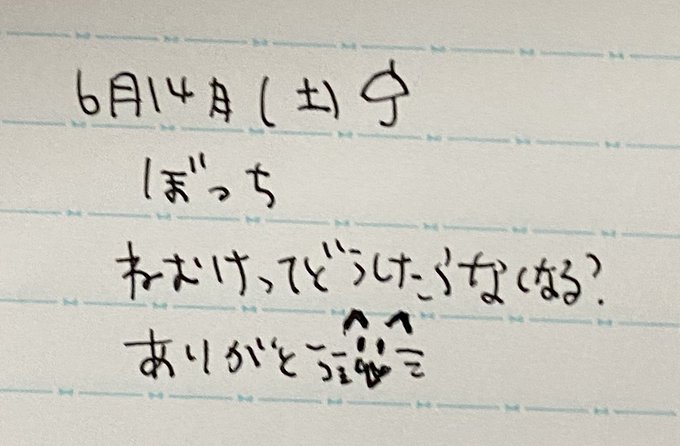 6月14月(土)
ぼっち
ねむけってどうしたらなくなる?
ありがとう